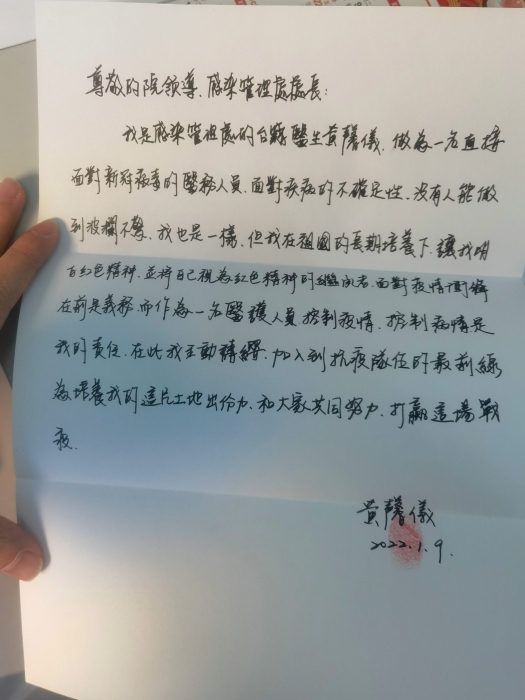 尊敬的院領導、感染管理處處長：
我是感染管理處的台籍醫生黃馨儀，做為一名直接
面對新冠病毒的醫務人員，面對疾病的不確定性，没有人能做
到波瀾不驚，我也是一樣，但我在祖國的長期培養下，讓我明
白紅色精神，並將自己視為紅色精神的繼承者，面對疫情衝鋒
在前是義務，而作為一名醫護人員控制疫情、控制病情是
我的責任，在此我主動請纓，加入到抗疫隊伍的最前線
為培養我的這片土地出份力，和大家共同努力，打贏這場戰
疫.
黃馨儀
2022.1.9.